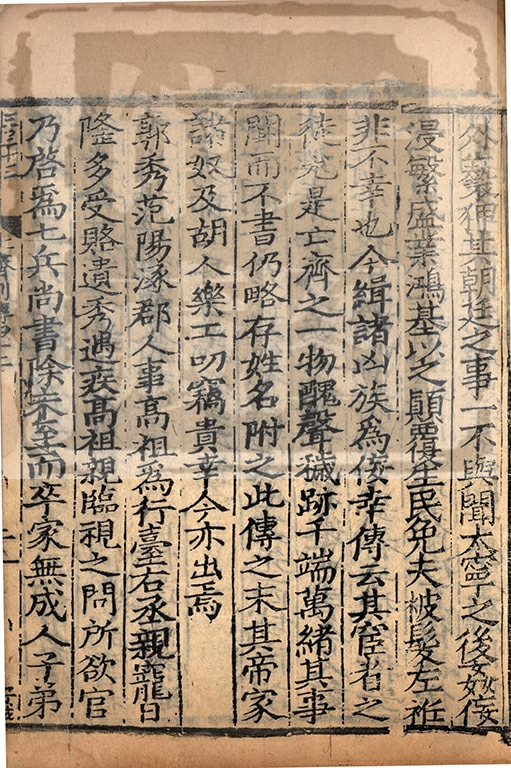 外褻狎其朝廷之事一不與聞太寧之後姦佞
浸繁盛業鴻基以之顛覆生民免夫被髮左衽
非不幸也今緝諸凶族為佞幸傳云其宦者之
徒尤是亡齊之一物醜聲穢跡千端萬緒其事
闕而不書仍略存姓名附之此傳之末其帝家
諸奴及胡人樂工叨竊貴幸今亦出焉
郭秀范陽涿郡人事高祖為行臺右丞親寵日
隆多受賂遺秀遇疾高祖親臨視之問所欲官
乃啓為七兵尚書除未至而卒家無成人子弟